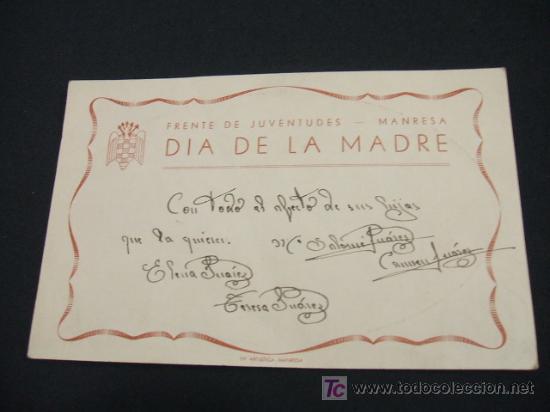 FRENTE DE JUVENTUDES — MANRESA
DIA DE LA MADRE
Con todo el afecto de sus hijas
que la quieren. Mª Salomé Suárez
Carmen Suárez
Elena Suárez
Teresa Suárez
TC www.todocoleccion.net